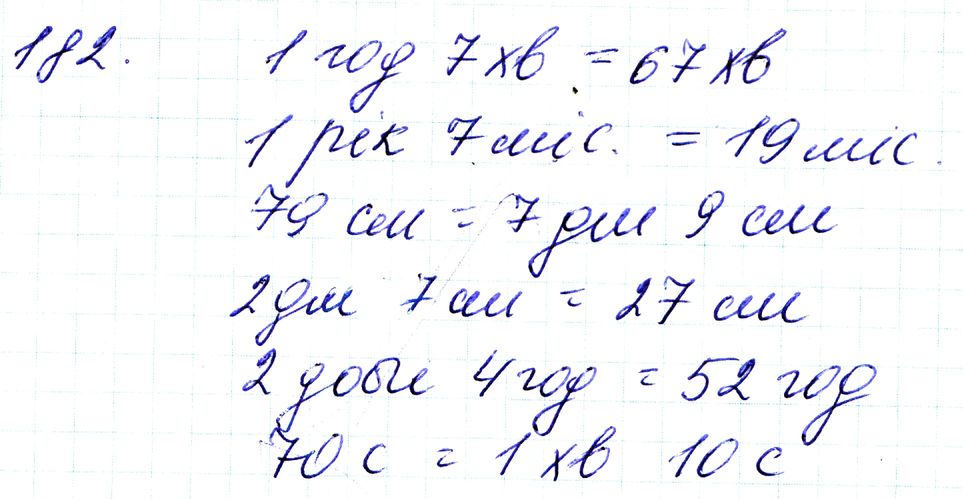 182. 1 год 7 хв = 67 хв
1 рік 7 міс. = 19 міс.
79 см = 7 дм 9 см
2 дм 7 см = 27 см
2 доби 4 год = 52 год
70 с = 1 хв 10 с